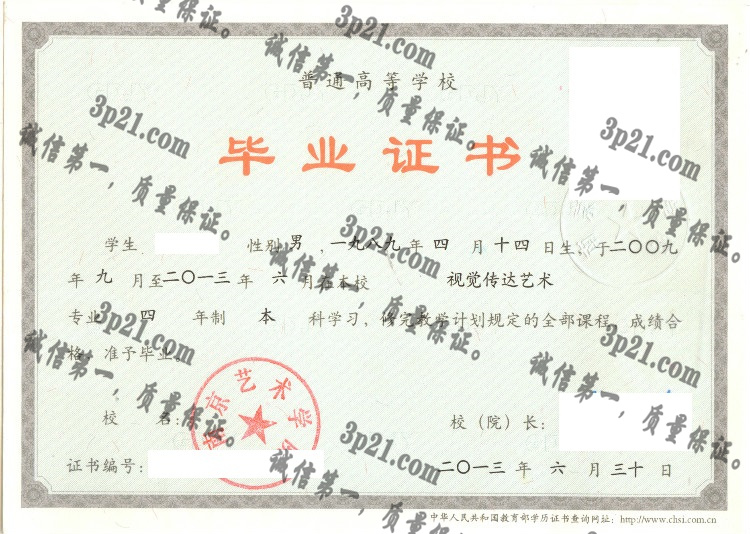 普通高等学校
毕业证书
学生 性别 男 ,一九八九 年 四 月 十四 日生,于二〇〇九
年 九 月至二〇一三 年 六 月在本校 视觉传达艺术
专业 四 年制 本 科学习,修完教学计划规定的全部课程,成绩合
格,准予毕业。
南京艺术学院
校 名: 校(院)长:
证书编号: 二〇一三 年 六 月 三十 日
中华人民共和国教育部学历证书查询网址:http://www.chsi.com.cn
3p21.com
诚信第一,质量保证。
3p21.com
诚信第一,质量保证。
3p21.com
诚信第一,质量保证。
3p21.com
诚信第一,质量保证。
3p21.com
诚信第一,质量保证。
3p21.com
诚信第一,质量保证。
3p21.com
诚信第一,质量保证。